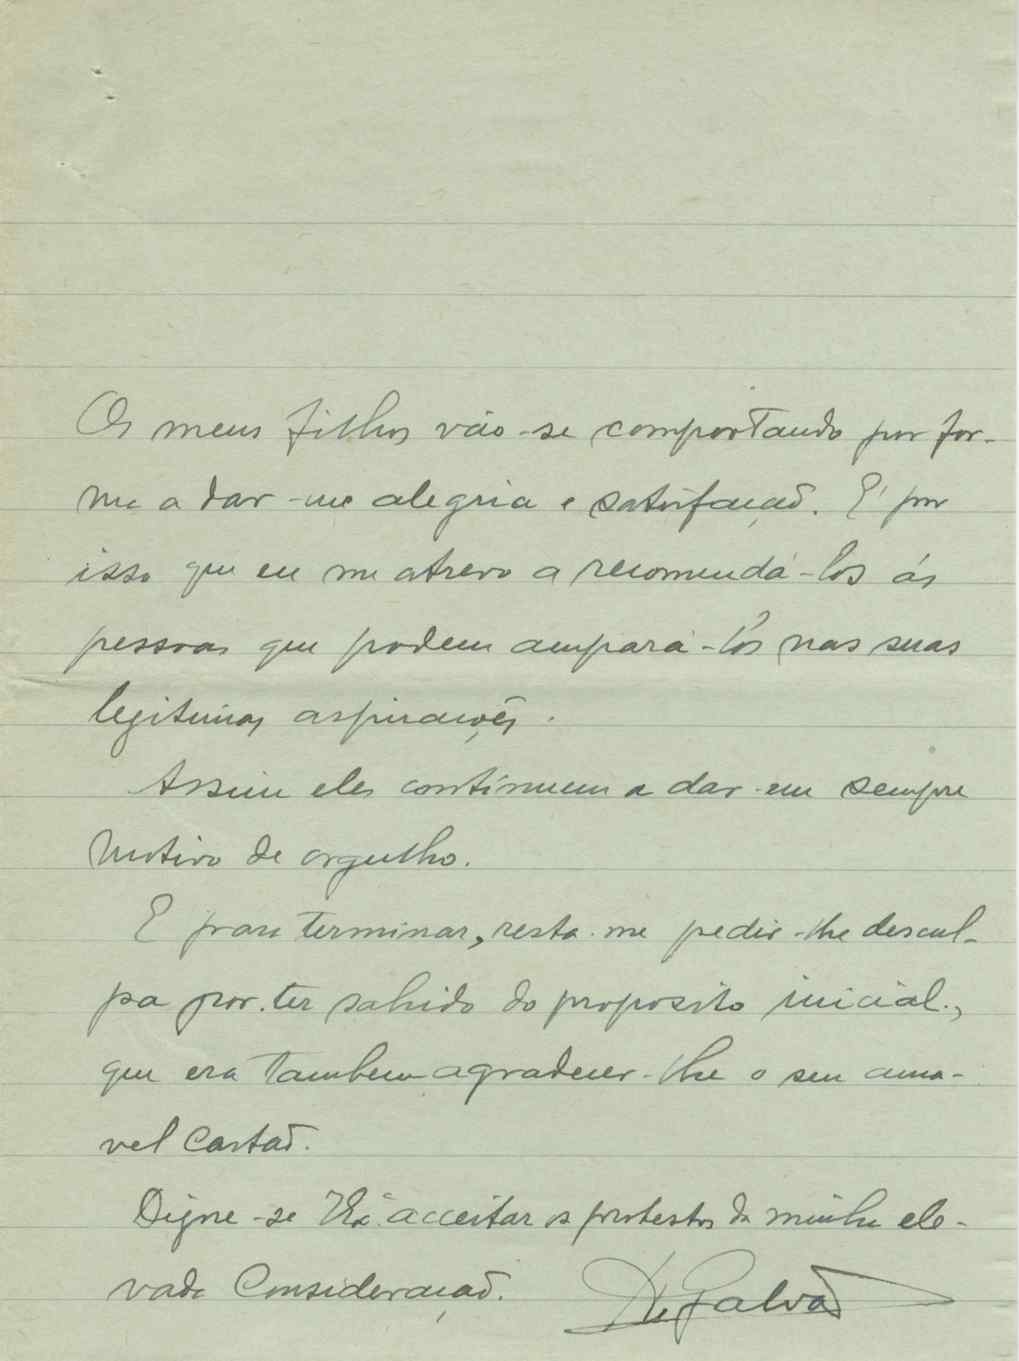 Os meus filhos vão-se comportando por for-
ma a dar-me alegria e satisfação. E' por
isso que eu me atrevo a recomendá-los ás
pessoas que podem ampará-los nas suas
legitimas aspirações.
Assim eles continuem a dar-em sempre
motivo de orgulho.
E para terminar, resta-me pedir-lhe descul-
pa por ter sahido do proposito inicial,
que era tambem agradecer-lhe o seu ama-
vel cartão.
Digne-se V.Ex.ª acceitar os protestos da minha ele-
vada Consideração. Galvão